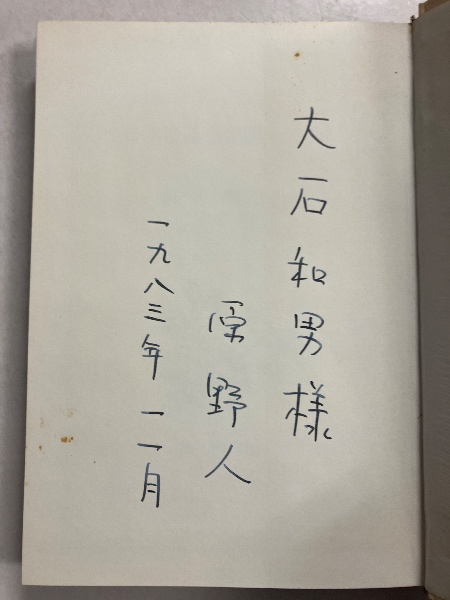 大石和男様
原野人
一九八三年一一月